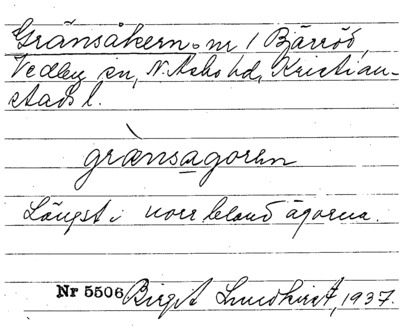 Gränsåkern, nr 1 Bjärröd,
Vedby sn, N. Åsbo hd, Kristian-
stads l.
grænsagoren
Längst i norr bland ägorna.
Nr 5506 Birgit Lundkvist, 1937.